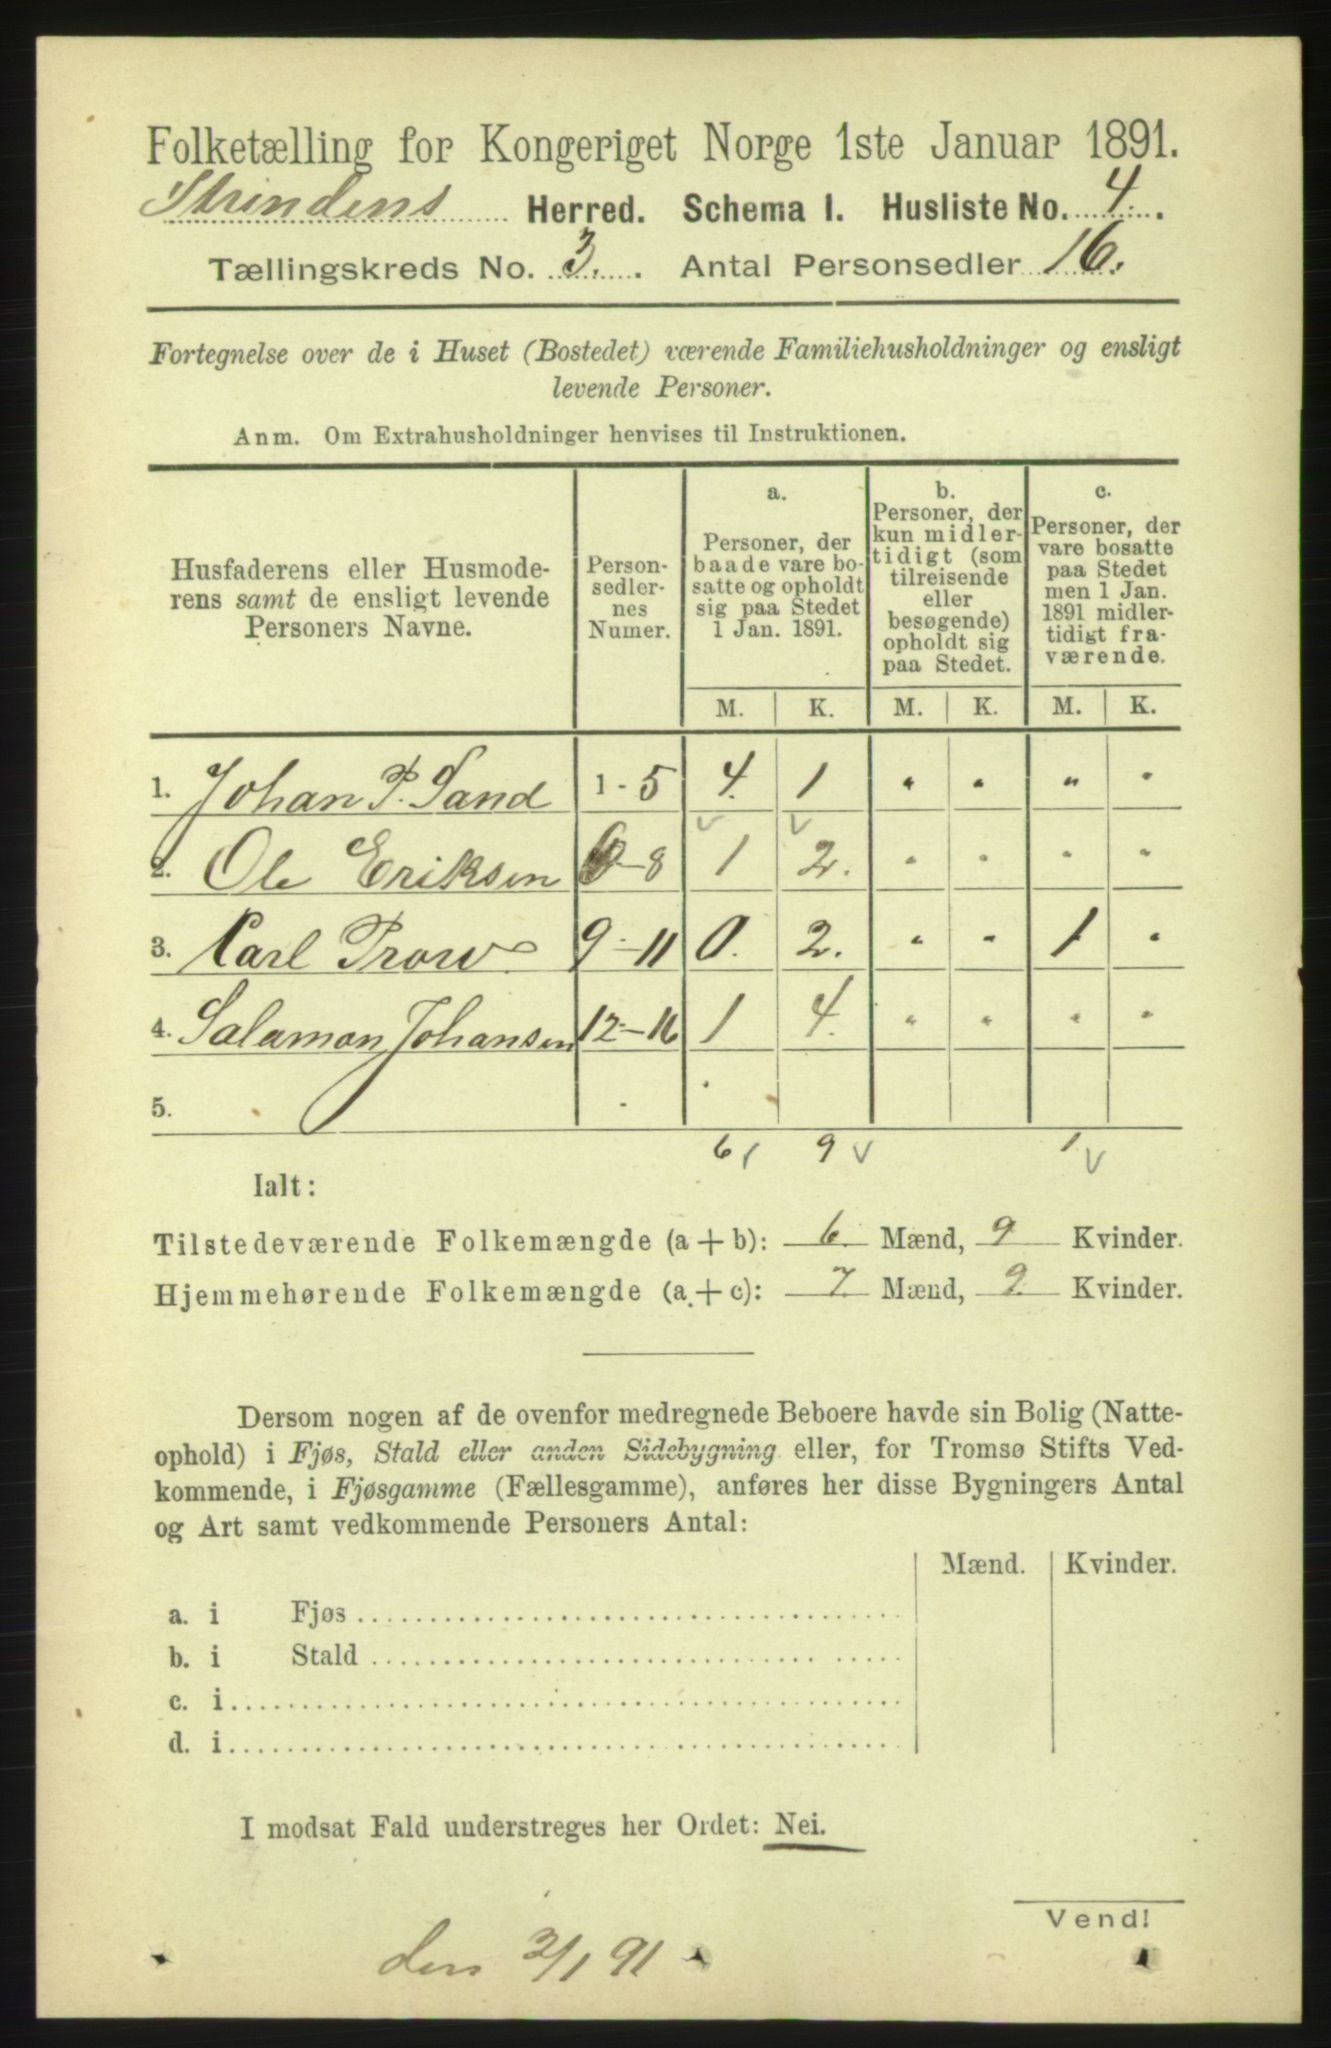 Folketælling for Kongeriget Norge 1ste Januar 1891.
Strindens Herred. Schema I. Husliste No. 4.
Tællingskreds No. 3. Antal Personsedler 16.
Fortegnelse over de i Huset (Bostedet) værende Familiehusholdninger og ensligt
levende Personer.
Anm. Om Extrahusholdninger henvises til Instruktionen.
Husfaderens eller Husmode-
rens samt de ensligt levende
Personers Navne.
Person-
sedler-
nes
Numer.
a.
Personer, der
baade vare bo-
satte og opholdt
sig paa Stedet
1 Jan. 1891.
b.
Personer, der
kun midler-
tidigt (som
tilreisende
eller
besøgende)
opholdt sig
paa Stedet.
c.
Personer, der
vare bosatte
paa Stedet
men 1 Jan.
1891 midler-
tidigt fra-
værende.
M. K. M. K. M. K.
1. Johan P. Sand 1-5 4. 1 " " " "
2. Ole Eriksen 6-8 1 2. " " " "
3. Carl Prow 9-11 0. 2. " " 1 "
4. Salamon Johansen 12-16 1 4. " " " "
5.
6 9 1
Ialt:
Tilstedeværende Folkemængde (a+b): 6 Mænd, 9 Kvinder.
Hjemmehørende Folkemængde (a+c): 7. Mænd, 9. Kvinder.
Dersom nogen af de ovenfor medregnede Beboere havde sin Bolig (Natte-
ophold) i Fjøs, Stald eller anden Sidebygning eller, for Tromsø Stifts Ved-
kommende, i Fjøsgamme (Fællesgamme), anføres her disse Bygningers Antal
og Art samt vedkommende Personers Antal:
Mænd. Kvinder.
a. i Fjøs
b. i Stald
c. i
d. i
I modsat Fald understreges her Ordet: Nei.
Vend!
den 3/1 91